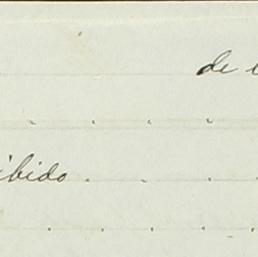 de
ibido . . . .